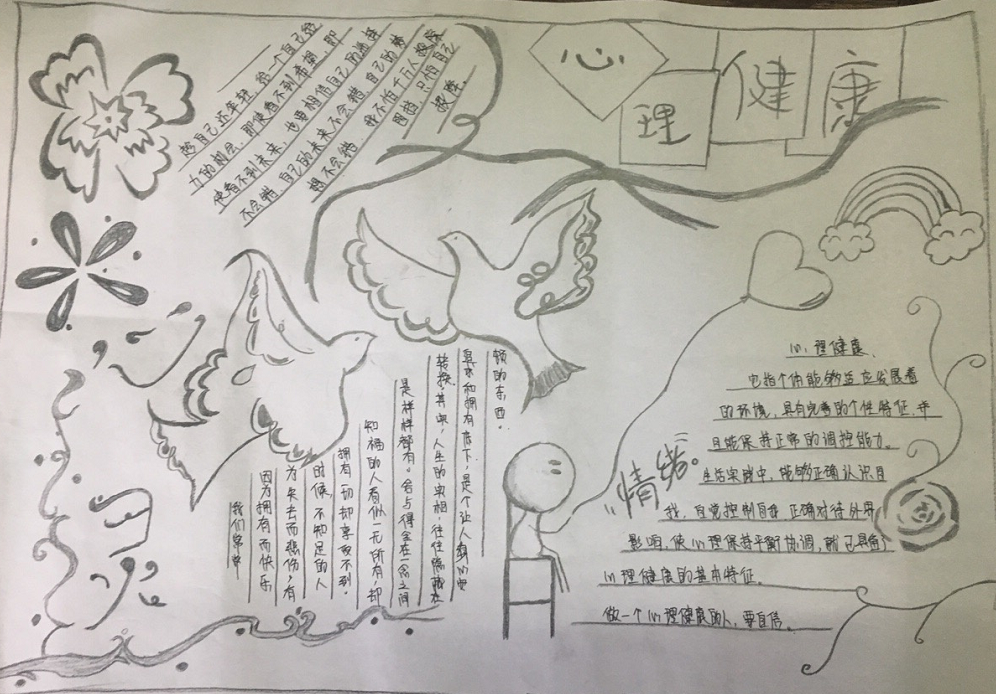 心理健康
趁自己还年轻，给一个自己努
力的机会，即使看不到希望，即
使看不到未来，也要相信自己的选择
不会错，自己的未来不会错，自己的梦
想不会错。我不怕千万人
挡，只怕自己
投降。
我们常常
因为拥有而快乐
为失去而悲伤，有
时候，不知足的人
拥有一切却享受不到，
知福的人看似一无所有，却
是样样都有。舍与得全在一念之间
转换其中，人生的实相，往往隐藏在
求和拥有底下，是个让人
顿的东西。
"情绪。"
心理健康、
它指个体能够适应发展着
的环境，具有完善的个性特征，并
且能保持正常的调控能力。
生活实践中，能够正确认识自
我，自觉控制自我，正确对待外界
影响，使心理保持平衡协调，就已具备
心理健康的基本特征。
做一个心理健康的人，要自信。